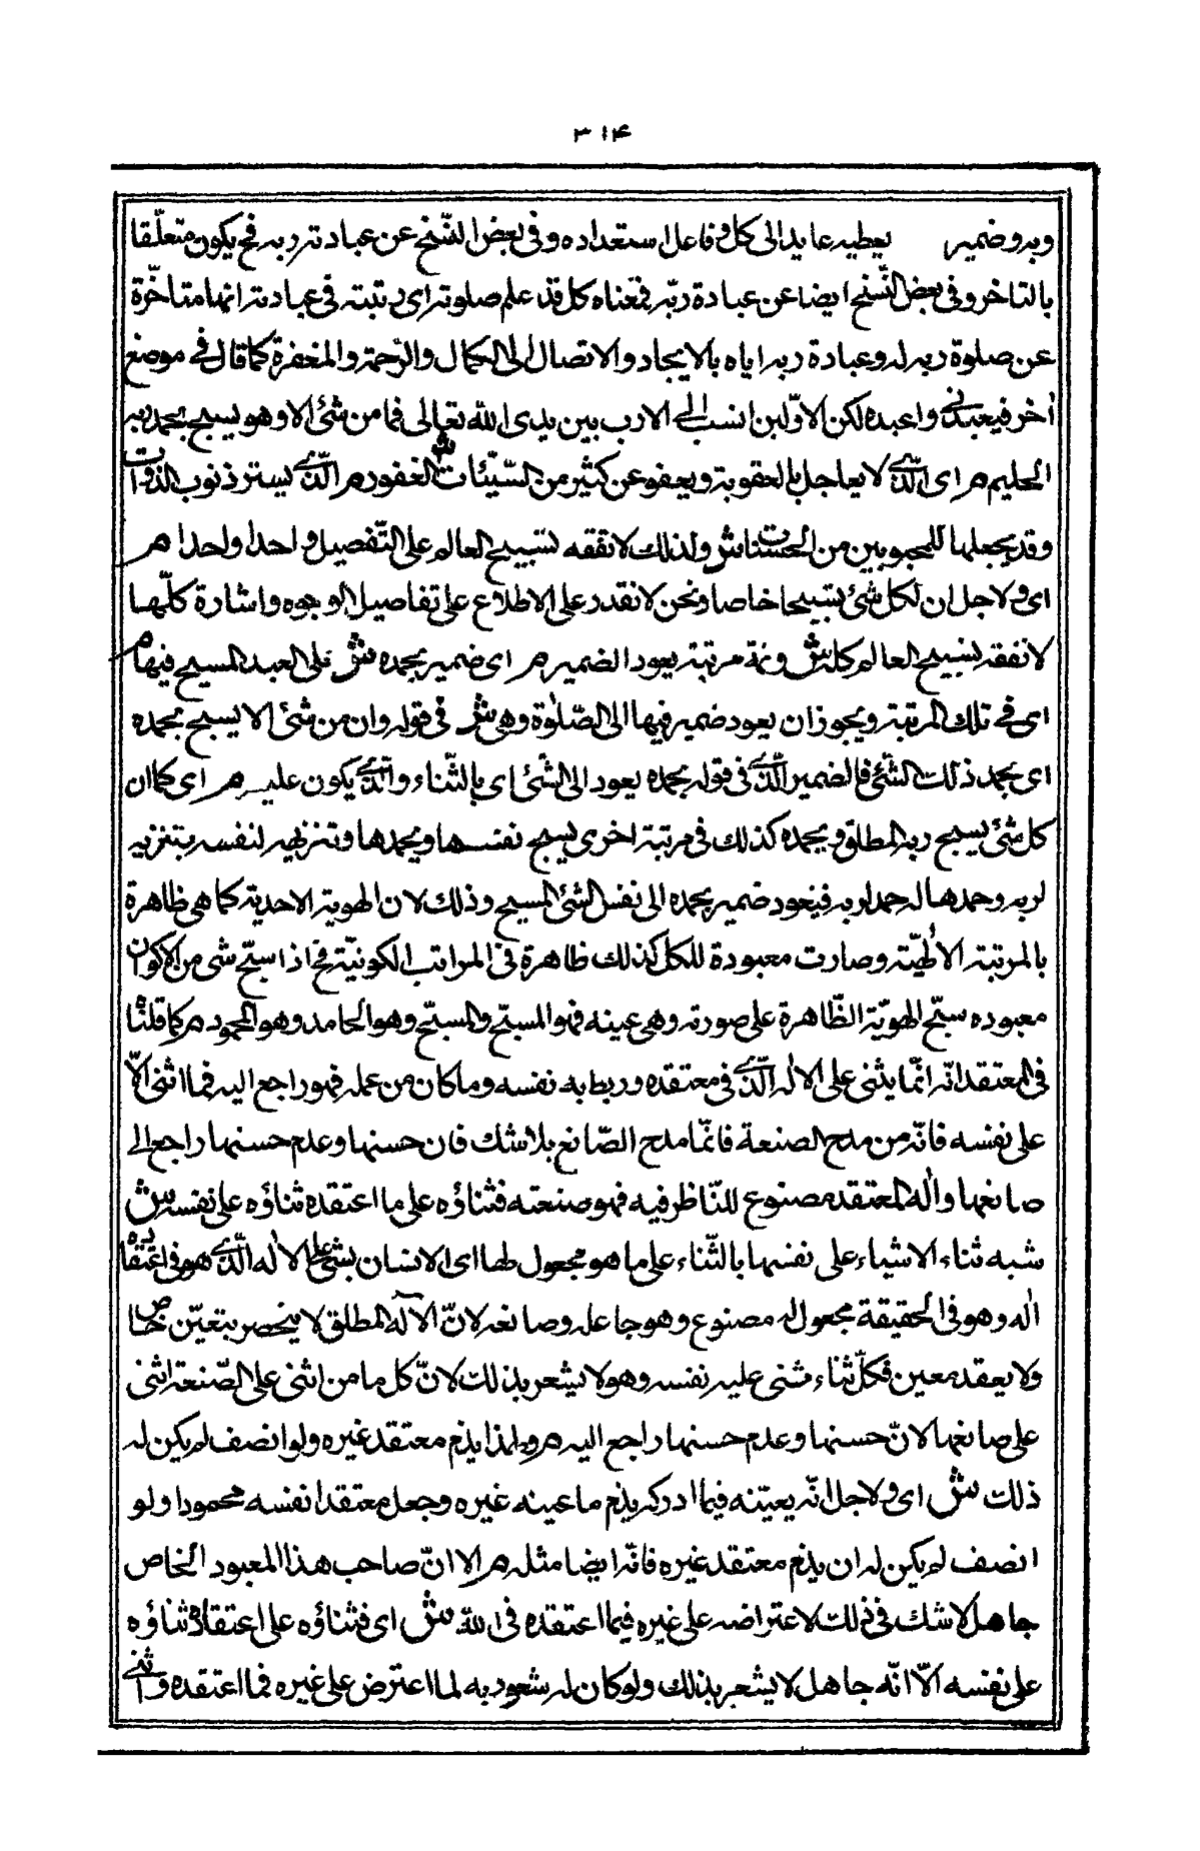 ٣١۴
وبه وضمير يعطيه عايد الى كل و فاعل استعداده وفى بعض النّسخ عن عبادته ربه فح يكون متعلّقا
بالتاخر وفى بعض النّسخ ايضا عن عبادة ربّه فمعناه كل قد علم صلوته اى رتبته فى عبادته انها متاخّرة
عن صلوة ربه له وعبادة ربه اياه بالايجاد والاتصال الى الكمال والرّحمة والمغفرة كما قال فى موضع
أخر فيعبدنى واعبده لكن الاوّل انسب الى الادب بين يدى اللّه تعالى فما من شئ الا وهو يسبح بحمد ربه
الحليم م اى الّذى لا يعاجل بالعقوبة ويعفو عن كثير من السّيّئات ش الغفور م الّذى يستر ذنوب الذوات
وقد يجعلها للمحبوبين من الحسنات ش ولذلك لا نفقه تسبيح العالم على التّفصيل واحدا واحدا م
اى ولاجل ان لكل شئ تسبيحا خاصا ونحن لا نقدر على الاطلاع على تفاصيل الوجوه واشارة كلّها
لا نفقه تسبيح العالم كله ش وثمة مرتبة يعود الضمير م اى ضمير بحمده ش على العبد المسبح فيها م
اى فى تلك المرتبة ويجوز ان يعود ضمير فيها الى الصّلوة وهى ش فى قوله وان من شئ الا يسبح بحمده
اى بحمد ذلك الشّئ فالضمير الّذى فى قوله بحمده يعود الى الشّئ اى بالثّناء والّذى يكون عليه م اى كما ان
كل شئ يسبح ربه المطلق ويحمده كذلك فى مرتبة اخرى يسبح نفسها ويحمدها وتنزيهه لنفسه بتنزيه
لربه وحمدها له حمد لربه فيعود ضمير بحمده الى نفس الشئ المسبح وذلك لان الهوية الاحدية كما هى ظاهرة
بالمرتبة الالٰهيّة وصارت معبودة للكل كذلك ظاهرة فى المراتب الكونيّة فح اذا سبّح شى من الاكوان
معبوده سبّح الهويّة الظّاهرة على صورته وهى عينه فهو المسبّح والمسبّح وهو الحامد وهو المحمود م كما قلنا
فى المعتقد انّه انّما يثنى على الالٰه الّذى فى معتقده وربط به نفسه وما كان من عمله فهو راجع اليه فما اثنى الّا
على نفسه فانّه من مدح الصنعة فانّما مدح الصّانع بلا شك فان حسنها وعدم حسنها راجع الى
صانعها والٰه المعتقد مصنوع للنّاظر فيه فهو صنعته فثناؤه على ما اعتقده ثناؤه على نفسه ش
شبه ثناء الاشياء على نفسها بالثّناء على ما هو مجعول لها اى الانسان يثنى على الالٰه الّذى هو فى اعتقاده
الٰه وهو فى الحقيقة مجعول له مصنوع وهو جاعله وصانعه لانّ الآله المطلق لا ينحصر بتعيّن خاص
ولا يعقد معين فكلّ ثناء مثنى عليه نفسه وهو لا يشعر بذلك لانّ كل ما من اثنى على الصّنعة اثنى
على صانعها لانّ حسنها وعدم حسنها راجع اليه م ولهذا يذم معتقد غيره ولو انصف لم يكن له
ذلك ش اى ولاجل انّه يعيّنه فيما ادركه يذم ما عينه غيره وجعل معتقد انفسه محمودا ولو
انصف لم يكن له ان يذم معتقد غيره فانّه ايضا مثله م الا انّ صاحب هذا المعبود الخاص
جاهل لا شك فى ذلك لاعتراضه على غيره فيما اعتقده فى اللّه ش اى فثناؤه على اعتقاده ثناؤه
على نفسه الّا انّه جاهل لا يشعر بذلك ولو كان له شعور به لما اعترض على غيره فما اعتقده واثنى